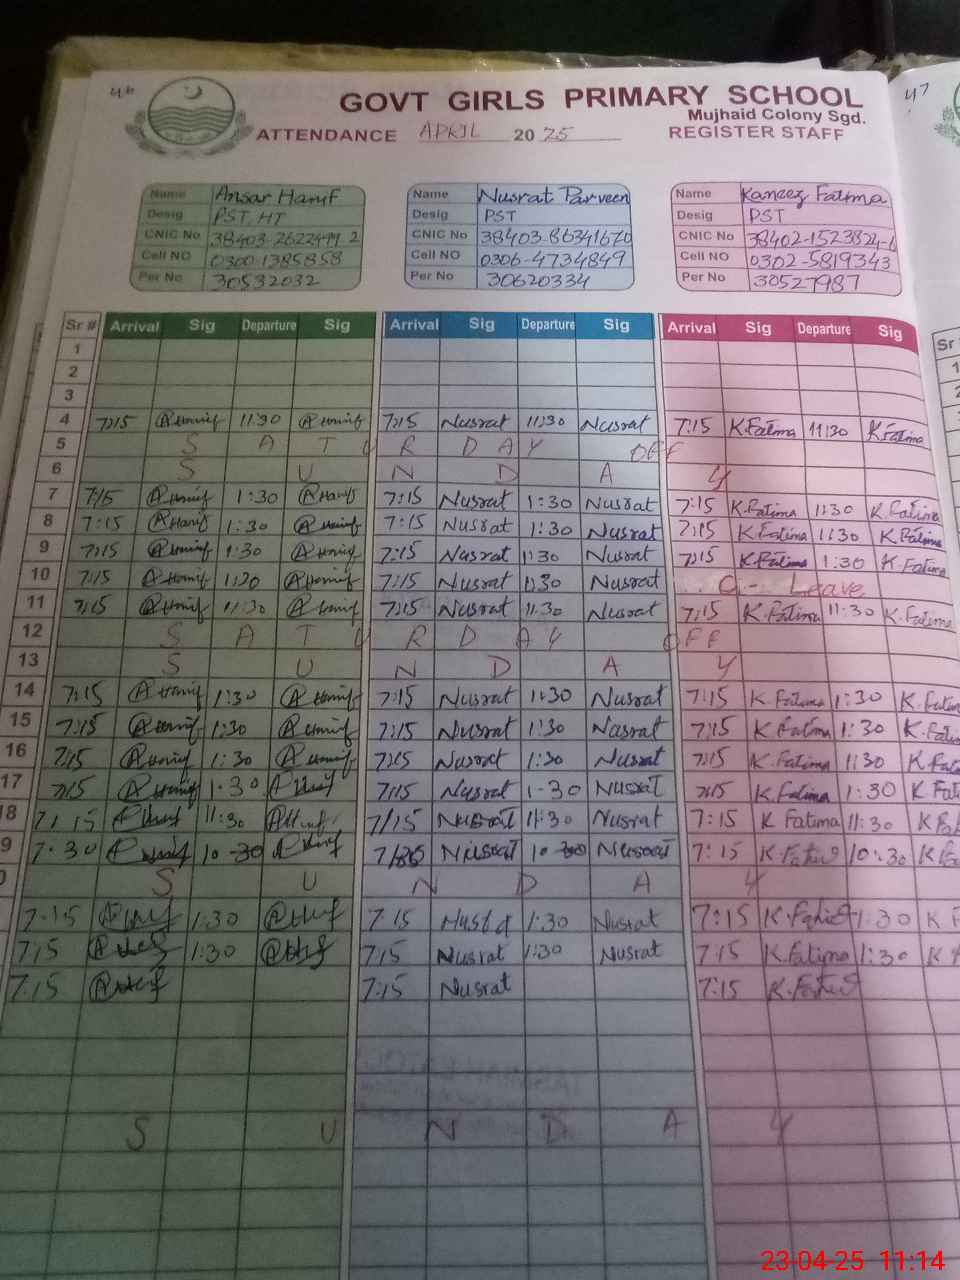 46
47
GOVT GIRLS PRIMARY SCHOOL
Mujhaid Colony Sgd.
ATTENDANCE APRIL 20 25 REGISTER STAFF
Name Ansar Hanif Name Nusrat Parveen Name Kaneez Fatima
Desig PST, HT Desig PST Desig PST
CNIC No 38403-2622499 2 CNIC No 38403-86341670 CNIC No 38402-1523824-6
Cell NO 0300-1385858 Cell NO 0306-4734849 Cell NO 0302-5819343
Per No 30532032 Per No 30620334 Per No 30527987
Sr # Arrival Sig Departure Sig Arrival Sig Departure Sig Arrival Sig Departure Sig Sr
1
2
3
4 7:15 A Hanif 11:30 A Hanif 7:15 Nusrat 11:30 Nusrat 7:15 K.Fatima 11:30 K.Fatima
5 S A T U R D A Y OFF
6 S U N D A Y
7 7:15 A Hanif 1:30 A Hanif 7:15 Nusrat 1:30 Nusrat 7:15 K.Fatima 1:30 K.Fatima
8 7:15 A Hanif 1:30 A Hanif 7:15 Nusrat 1:30 Nusrat 7:15 K.Fatima 1:30 K.Fatima
9 7:15 A Hanif 1:30 A Hanif 7:15 Nusrat 1:30 Nusrat 7:15 K.Fatima 1:30 K.Fatima
10 7:15 A Hanif 1:30 A Hanif 7:15 Nusrat 1:30 Nusrat C-Leave
11 7:15 A Hanif 11:30 A Hanif 7:15 Nusrat 11:30 Nusrat 7:15 K.Fatima 11:30 K.Fatima
12 S A T U R D A Y OFF
13 S U N D A Y
14 7:15 A Hanif 1:30 A Hanif 7:15 Nusrat 1:30 Nusrat 7:15 K.Fatima 1:30 K.Fatim
15 7:15 A Hanif 1:30 A Hanif 7:15 Nusrat 1:30 Nusrat 7:15 K.Fatima 1:30 K.Fat
16 7:15 A Hanif 1:30 A Hanif 7:15 Nusrat 1:30 Nusrat 7:15 K.Fatima 1:30 K.Fat
17 7:15 A Hanif 1-30 A Hanif 7:15 Nusrat 1-30 Nusrat 7:15 K.Fatima 1:30 K.Fat
18 7:15 A Hanif 11:30 A Hanif 7:15 Nusrat 11:30 Nusrat 7:15 K Fatima 11:30 K Fat
9 7:30 A Hanif 10-30 A Hanif Nusrat 10 30 Nusrat 7:15 10:30
S U N D A Y
7:15 1:30 7:15 1:30 Nusrat 7:15 1:30 K F
7:15 1:30 7:15 Nusrat 1:30 Nusrat 7:15 K.Fatima 1:30
7:15 7:15 Nusrat 7:15
S U N D A Y
23-04-25 11:14